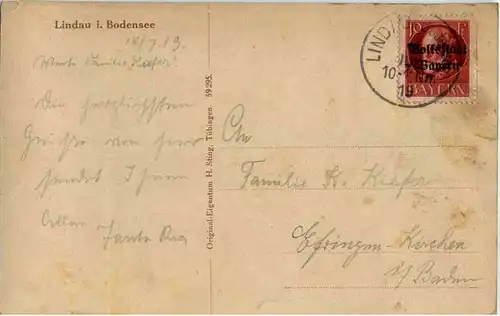 Lindau i. Bodensee
18/7.19.
Werte Familie Kiefer!
Die herzlichsten
Grüsse von hier
sendet Ihnen
Allen Tante
Original-Eigentum H. Sting, Tübingen. 59295.
LINDAU
10-
19
10 PF
Volksstaat
Bayern
BAYERN
An
Familie K. Kiefer
Efringen-Kirchen
i/Baden